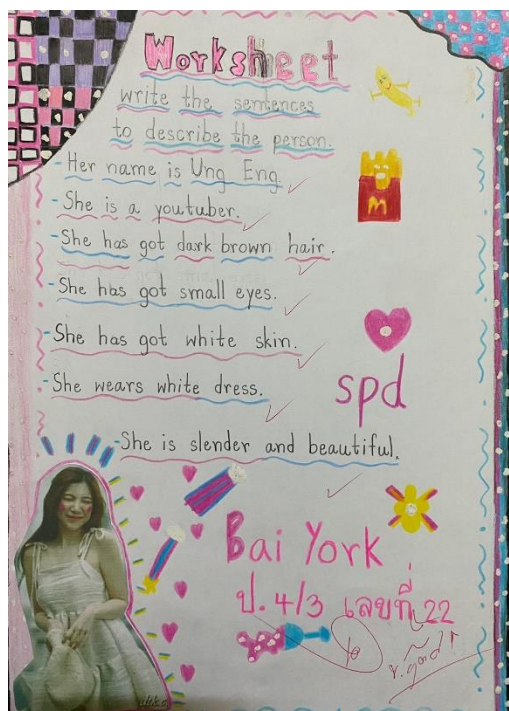 Worksheet
write the sentences
to describe the person.
- Her name is Ung Eng.
- She is a youtuber.
- She has got dark brown hair.
- She has got small eyes.
- She has got white skin.
- She wears white dress.
spd
- She is slender and beautiful.
Bai York
ป. 4/3 เลขที่ 22